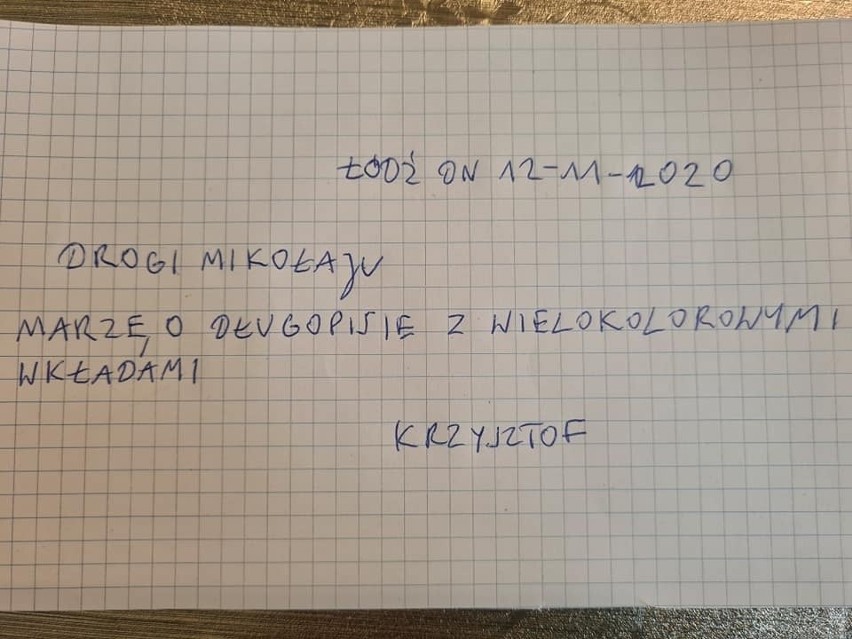 ŁÓDŹ DN 12-11-2020
DROGI MIKOŁAJU
MARZĘ O DŁUGOPISIE Z WIELOKOLOROWYMI
WKŁADAMI
KRZYSZTOF